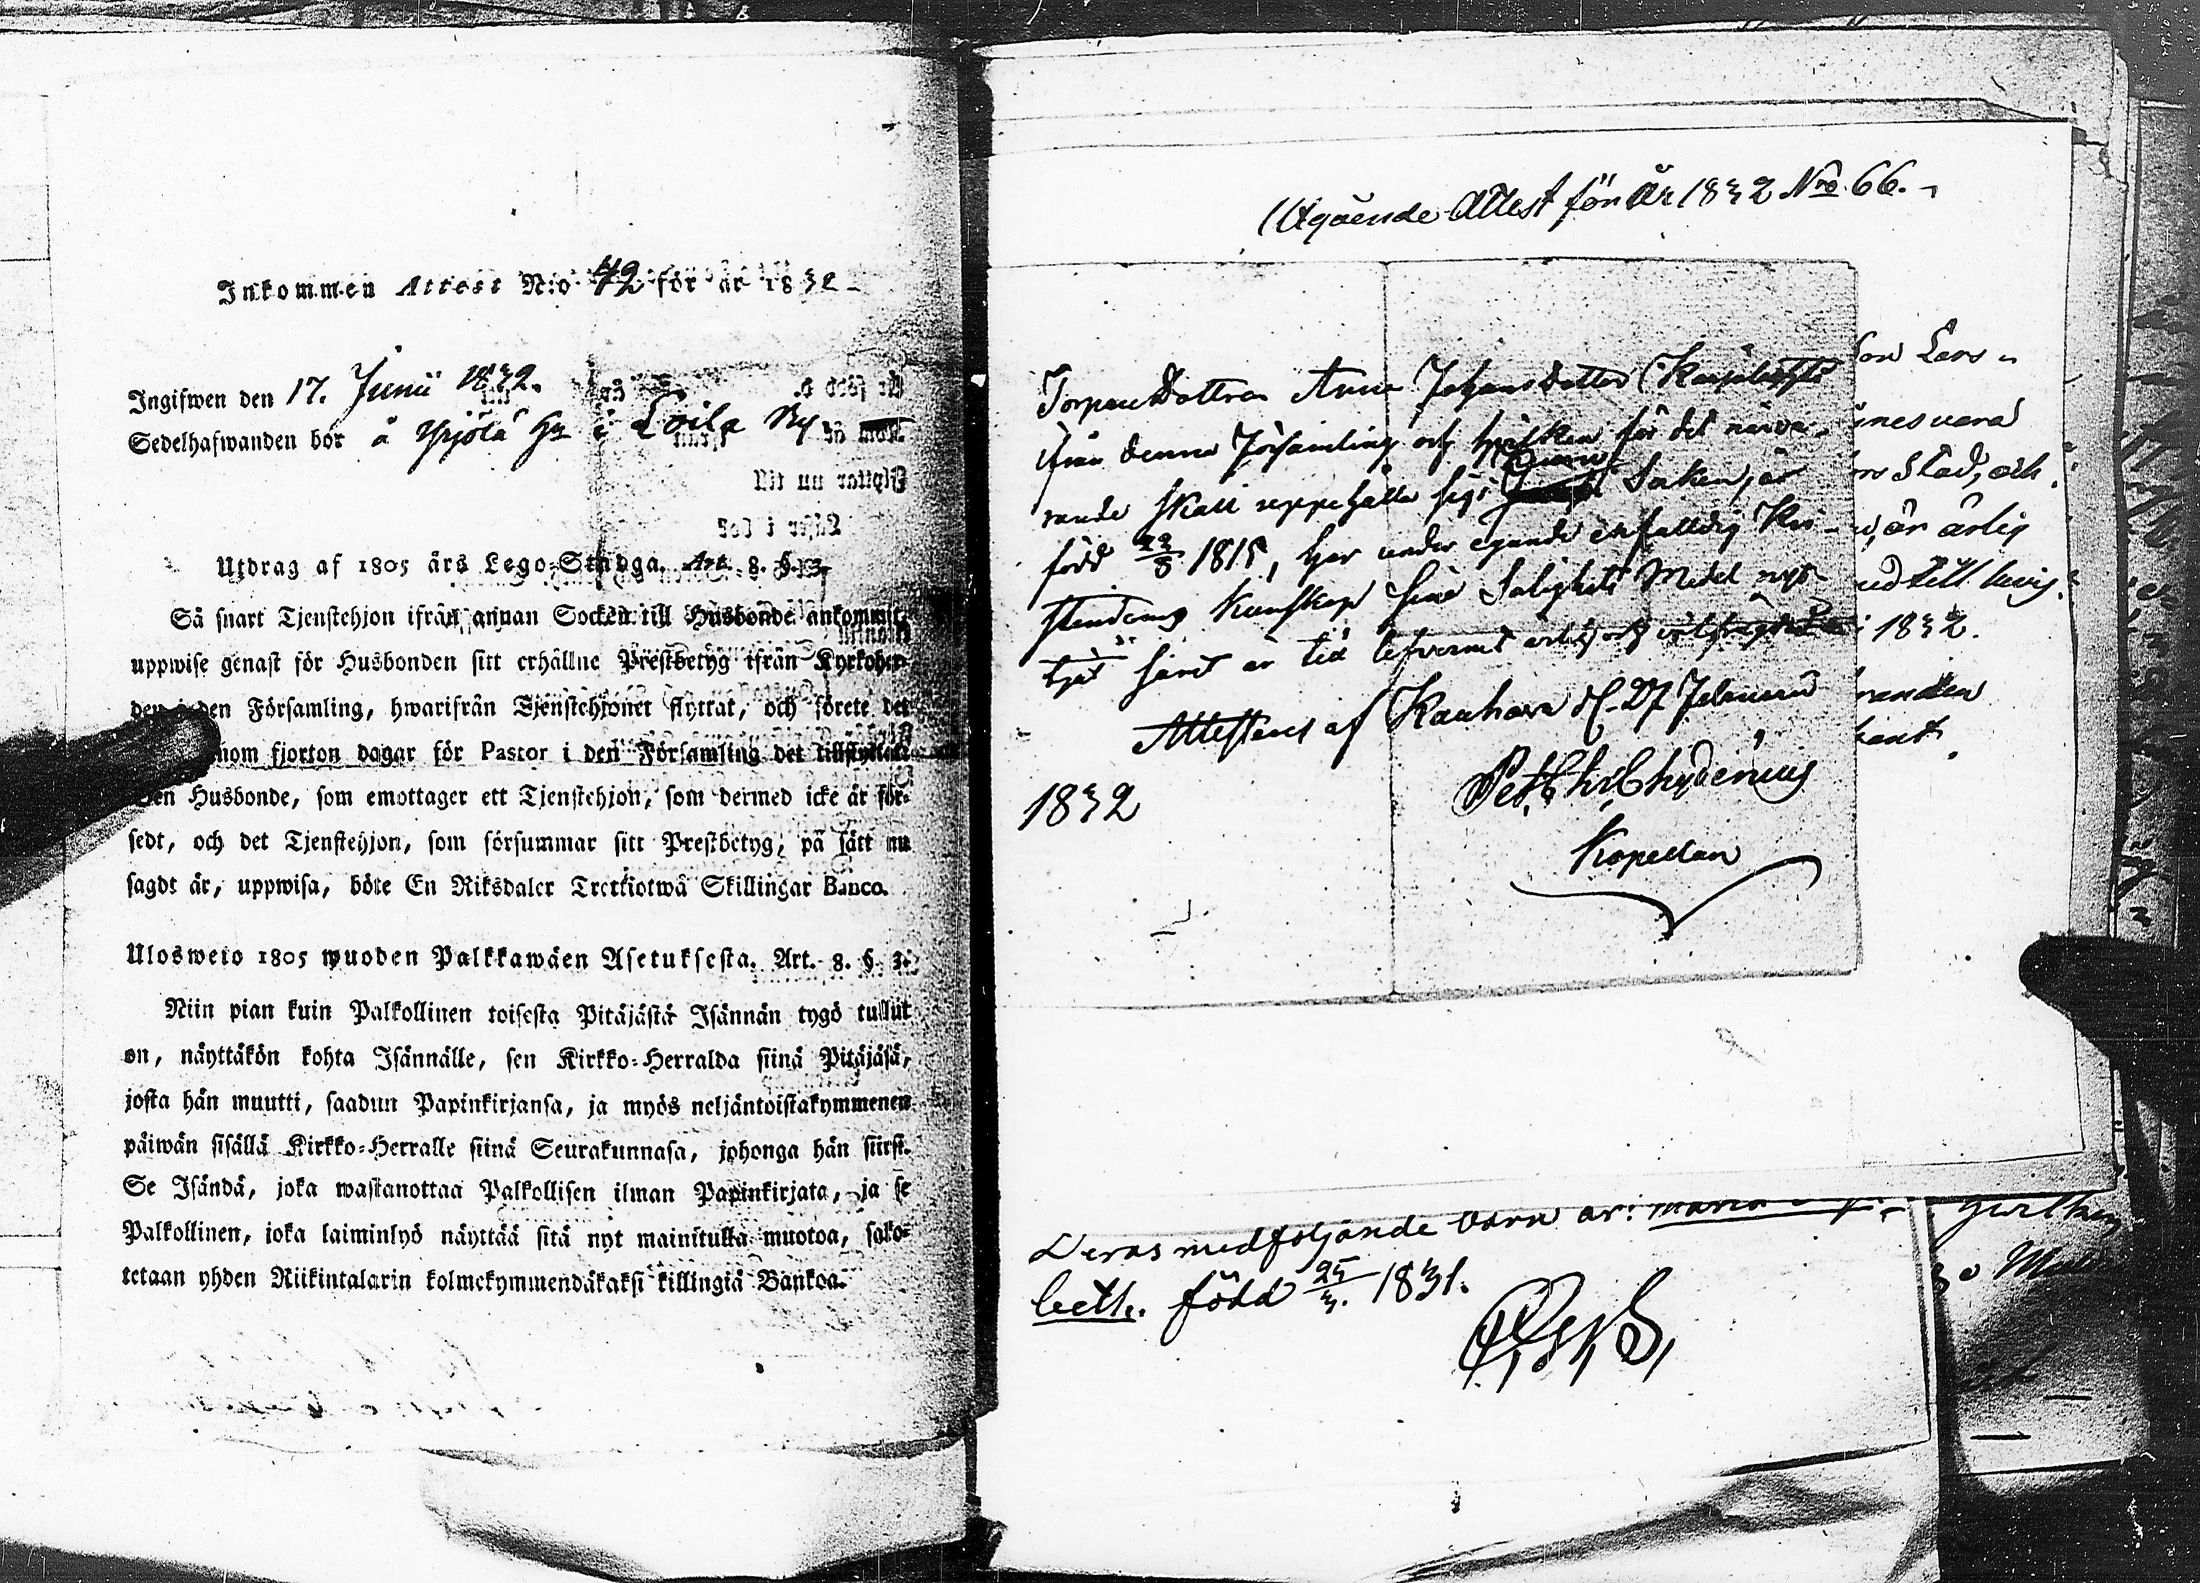 Inkommen Attest N:o 42 för år 1832
Ingifwen den 17. Junii 1832.
Sedelhafwanden bor å Ypjölä Hn i Loila By
Utdrag af 1805 års Lego-Stadga. Art. 8. §. 3.
Så snart Tjenstehjon ifrån annan Socken till Husbonde ankommit,
uppwise genast för Husbonden sitt erhållne Prestbetyg ifrån Kyrkoher-
den i den Församling, hwarifrån Tjenstehjonet flyttat, och förete det
inom fjorton dagar för Pastor i den Församling det tillflyttat.
Den Husbonde, som emottager ett Tjenstehjon, som dermed icke är för-
sedt, och det Tjenstehjon, som försummar sitt Prestbetyg, på sätt nu
sagdt är, uppwisa, böte En Riksdaler Trettiotwå Skillingar Banco.
Ulosweto 1805 wuoden Palkkawäen Asetuksesta. Art. 8. §. 3.
Niin pian kuin Palkollinen toisesta Pitäjästä Isännän tygö tullut
on, näyttäkön kohta Isännälle, sen Kirkko-Herralda siinä Pitäjäsä,
josta hän muutti, saadun Papinkirjansa, ja myös neljäntoistakymmenen
päiwän sisällä Kirkko-Herralle siinä Seurakunnasa, johonga hän siirsi.
Se Isändä, joka wastanottaa Palkollisen ilman Papinkirjata, ja se
Palkollinen, joka laiminlyö näyttää sitä nyt mainitulla muotoa, sako-
tetaan yhden Riikintalarin kolmekymmendäkaksi killingiä Bankoa.
Utgående Attest för År 1832 Nro. 66.
Torpare Dottren Anna Johansdotter
ifrån denna Församling och hvilken för det närva-
rande skall uppehålla sig i Socken, är
född 22/8 1815, har under egande enfalldig Kri-
stendoms Kunskap sine Salighets Medel nytt-
tjat samt är till lefvernet ärlig och
Attesteras af Kauhava d. 27 Februarii
1832
Pet. Chr. Chydenius
Kapellan
son Lars
Stad, och
är ärlig
1832.
Deras medföljande barn är: Maria
beth. född 25/3. 1831.